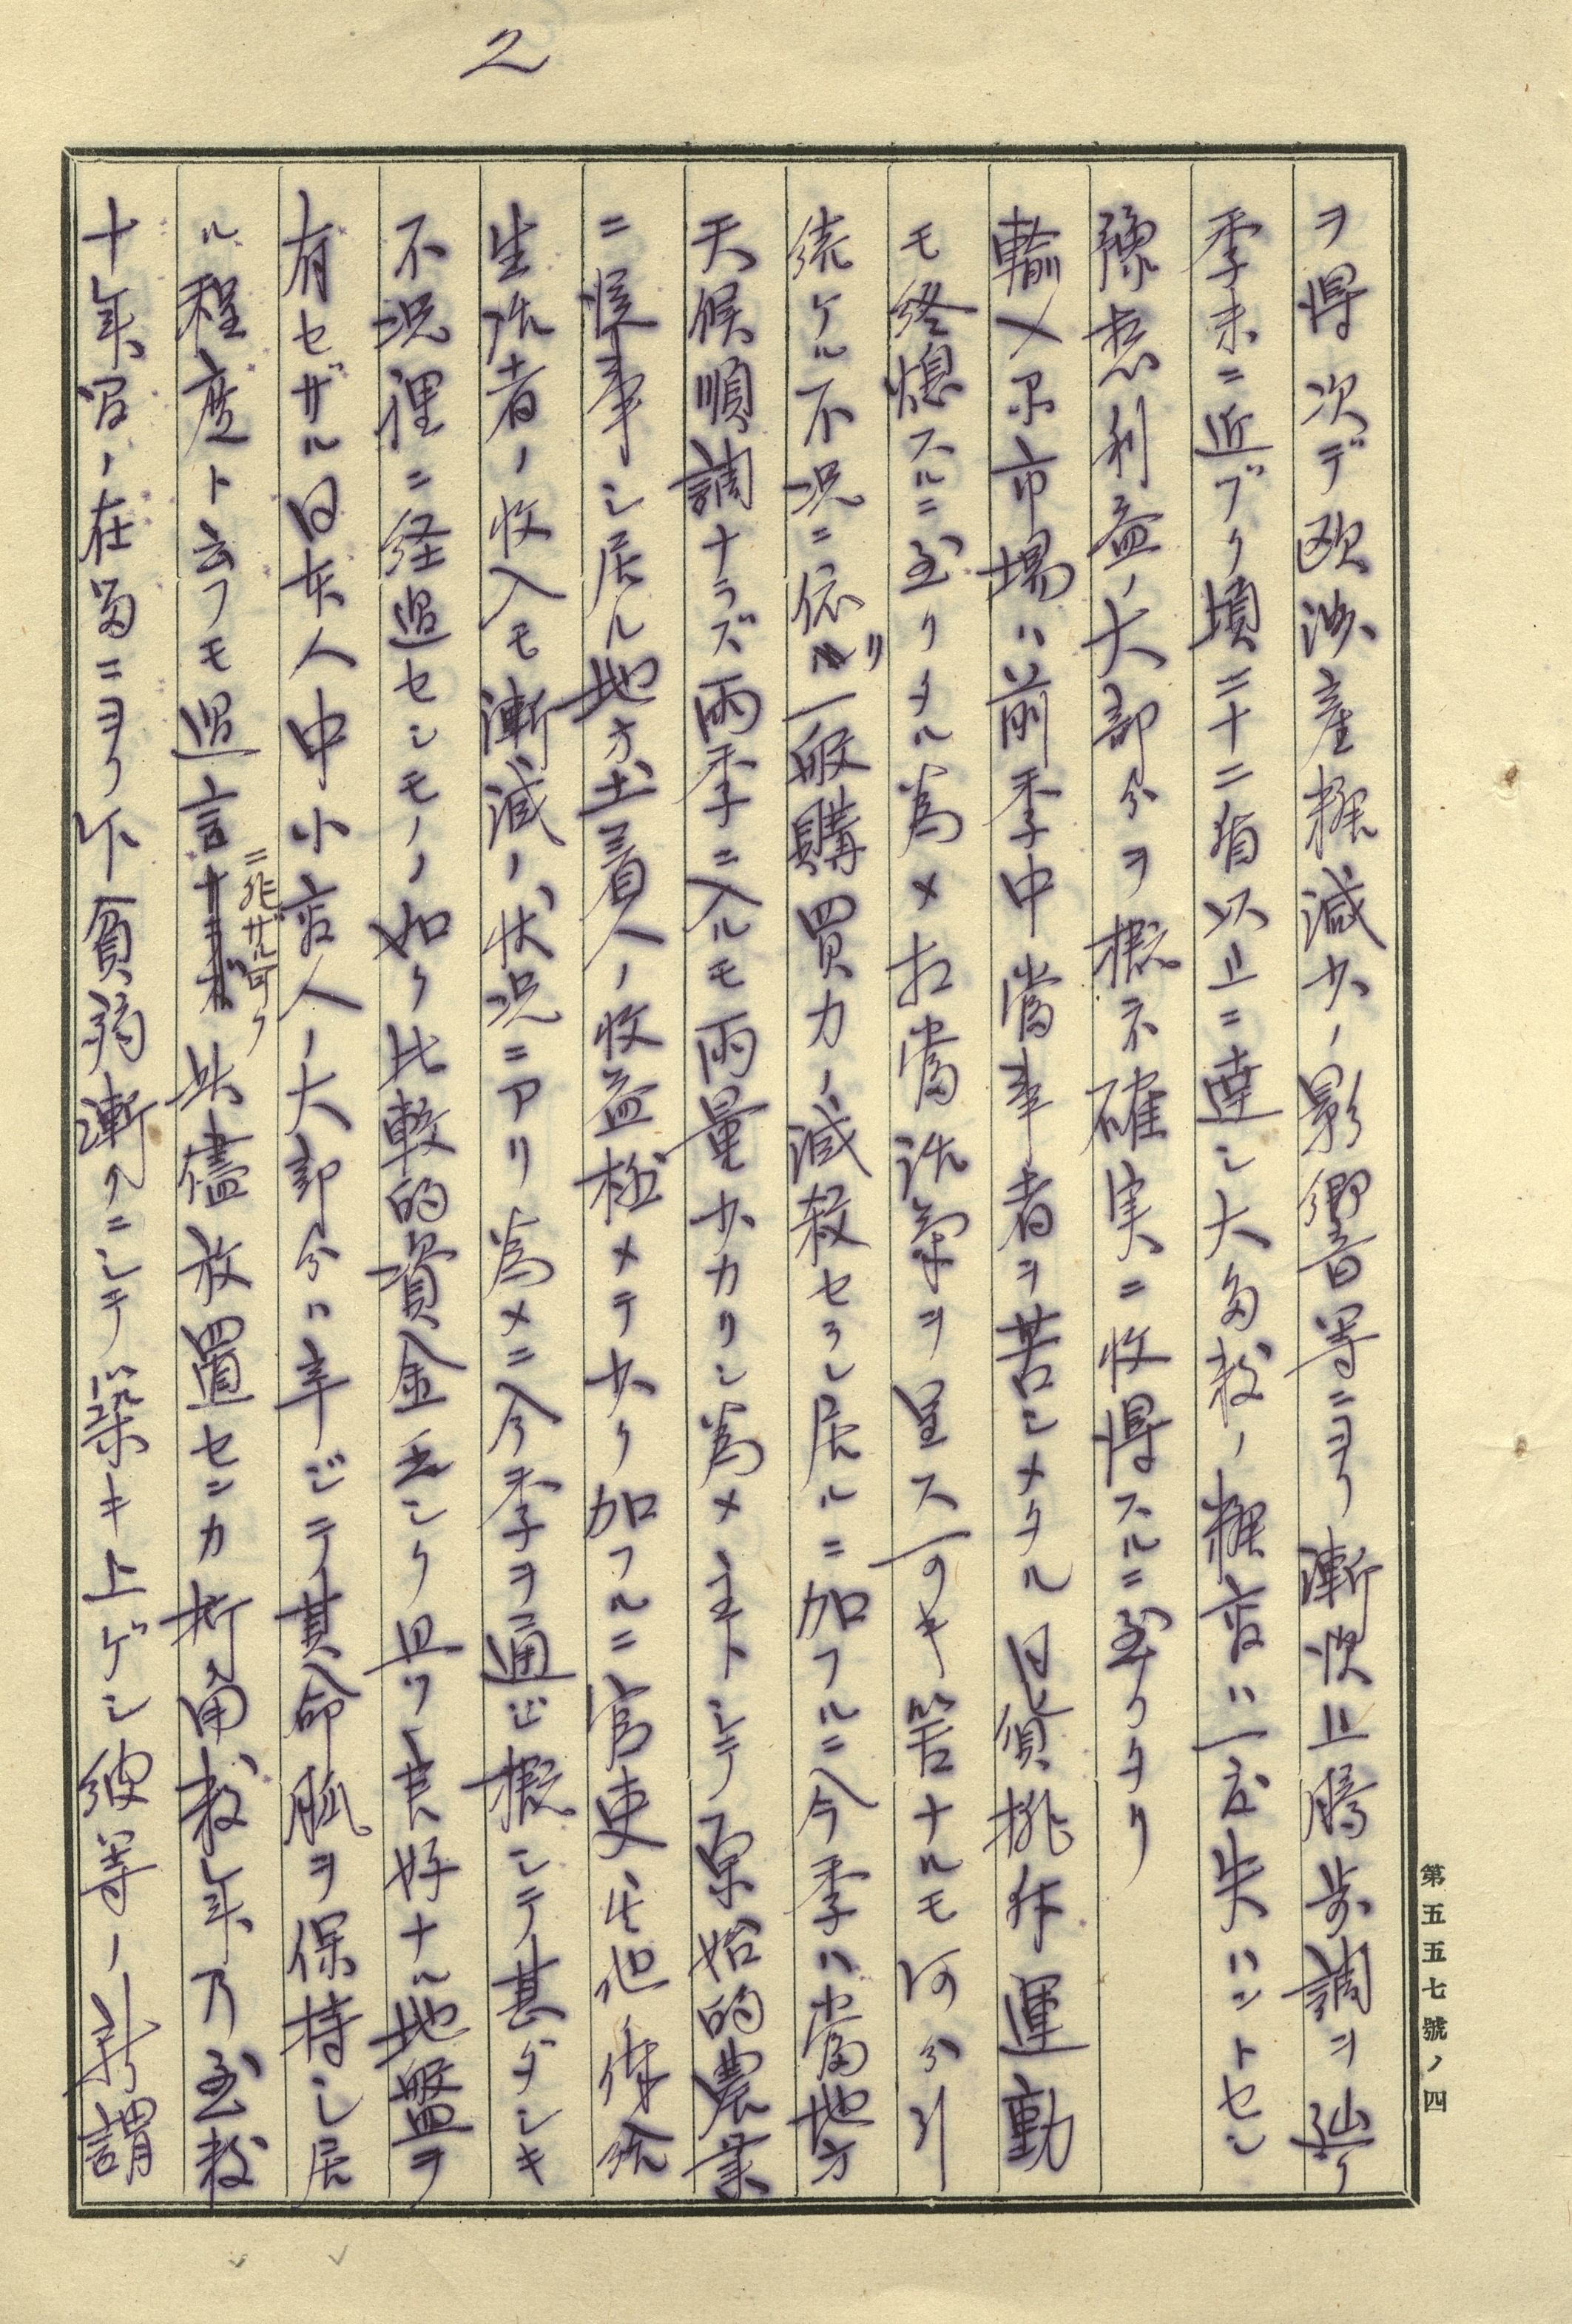 2
ヲ得次デ欧洲産糖減少ノ影響等ニヨリ漸次止騰歩調ヲ辿リ
季末ニ近ヅク頃ニ十二盾以上ニ達シ大多数ノ糖商ハ一度失ハントセシ
豫想利益ノ大部分ヲ概ネ確実ニ收得スルニ到リタリ
輸入品市場ハ前季中當事者ヲ苦シメタル日貨排斥運動
モ終熄スルニ至リタル為メ相當活氣ヲ呈ス可キ筈ナルモ何分引
続ケル不況ニ依リ一般購買力ノ減殺セラレ居ルニ加フルニ今季ハ當地方
天候順調ナラズ雨季ニ入ルモ雨量少カリシ為メ主トシテ原始的農業
ニ従事シ居ル地方土着人ノ收益極メテ少ク加フルニ官吏其他俸給
生活者ノ收入モ漸減ノ状況ニアリ為メニ今季ヲ通ジ概シテ甚ダシキ
不況裡ニ経過セシモノノ如ク比較的資金乏シク且ツ良好ナル地盤ヲ
有セザル日本人中小商人ノ大部分ハ辛ジテ其命脈ヲ保持シ居
ル程度ト云フモ過言ニ非ザル可ク此儘放置センカ折角数年乃至数
十年間ノ在留ニヨリ貧弱漸クニシテ築キ上ゲシ彼等ノ所謂
第五五七號ノ四